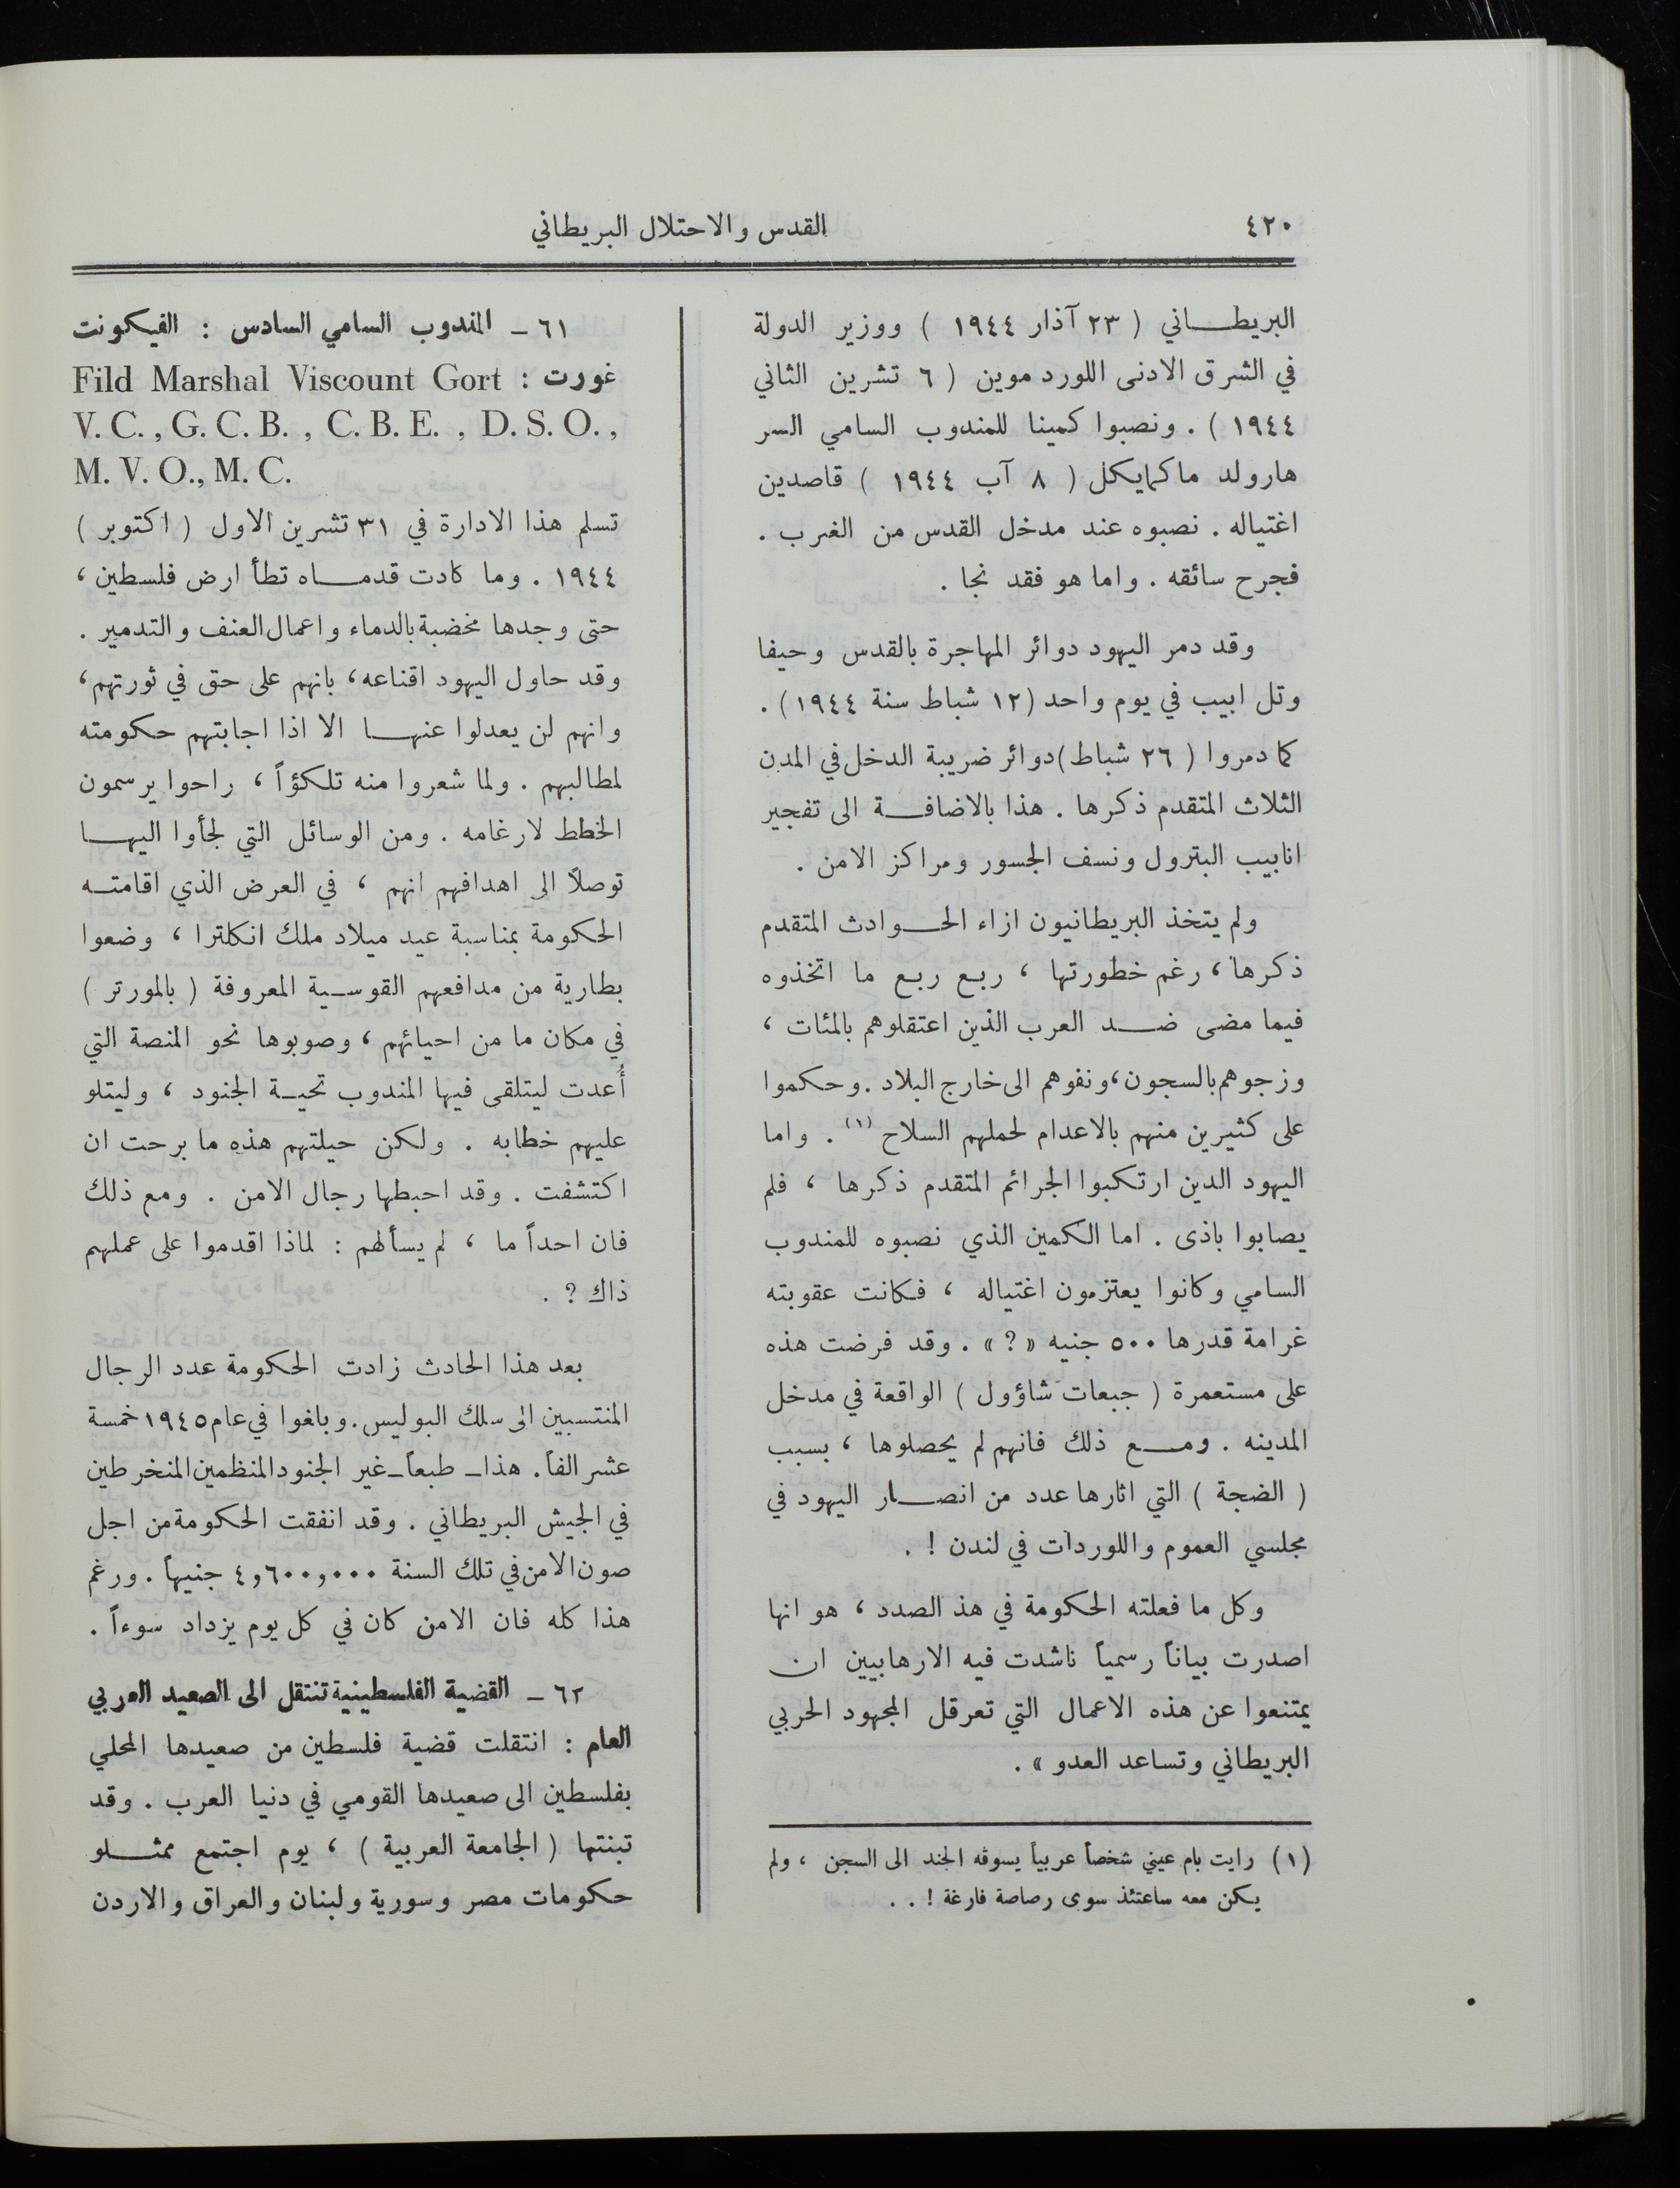 ٤٢٠
القدس والاحتلال البريطاني
البريطـاني ( ٢٣ آذار ١٩٤٤ ) ووزير الدولة
في الشرق الادنى اللورد موين ( ٦ تشرين الثاني
١٩٤٤ ) . ونصبوا كمينا للمندوب السامي السر
هارولد ماكمايكل ( ٨ آب ١٩٤٤ ) قاصدين
اغتياله . نصبوه عند مدخل القدس من الغرب .
فجرح سائقه . واما هو فقد نجا .
وقد دمر اليهود دوائر المهاجرة بالقدس وحيفا
وتل ابيب في يوم واحد (١٢ شباط سنة ١٩٤٤) .
كما دمروا ( ٢٦ شباط) دوائر ضريبة الدخل في المدن
الثلاث المتقدم ذكرها . هذا بالاضافـة الى تفجير
انابيب البترول ونسف الجسور ومراكز الامن .
ولم يتخذ البريطانيون ازاء الحـوادث المتقدم
ذكرها ، رغم خطورتها ، ربع ربع ما اتخذوه
فيما مضى ضـد العرب الذين اعتقلوهم بالمئات ،
وزجوهم بالسجون ، ونفوهم الى خارج البلاد . وحكموا
على كثيرين منهم بالاعدام لحملهم السلاح (١) . واما
اليهود الدين ارتكبوا الجرائم المتقدم ذكرها ، فلم
يصابوا باذى . اما الكمين الذي نصبوه للمندوب
السامي وكانوا يعتزمون اغتياله ، فكانت عقوبته
غرامة قدرها ٥٠٠ جنيه « ؟ » . وقد فرضت هذه
على مستعمرة ( جبعات شاؤول ) الواقعة في مدخل
المدينه . ومـع ذلك فانهم لم يحصلوها ، بسبب
( الضجة ) التي اثارها عدد من انصـار اليهود في
مجلسي العموم واللوردات في لندن ! .
وكل ما فعلته الحكومة في هذ الصدد ، هو انها
اصدرت بياناً رسمياً ناشدت فيه الارهابيين ان
يمتنعوا عن هذه الاعمال التي تعرقل المجهود الحربي
البريطاني وتساعد العدو » .
(١) رايت بام عيني شخصاً عربياً يسوقه الجند الى السجن ، ولم
يكن معه ساعتئذ سوى رصاصة فارغة ! . .
٦١ ـ المندوب السامي السادس : الفيكونت
غورت : Fild Marshal Viscount Gort
V. C. , G. C. B. , C. B. E. , D. S. O. ,
M. V. O., M. C.
تسلم هذا الادارة في ٣١ تشرين الاول ( اكتوبر )
١٩٤٤ . وما كادت قدمـاه تطأ ارض فلسطين ،
حتى وجدها مخضبة بالدماء واعمال العنف والتدمير .
وقد حاول اليهود اقناعه ، بانهم على حق في ثورتهم ،
وانهم لن يعدلوا عنهـا الا اذا اجابتهم حكومته
لمطالبهم . ولما شعروا منه تلكؤاً ، راحوا يرسمون
الخطط لارغامه . ومن الوسائل التي لجأوا اليهـا
توصلاً الى اهدافهم انهم ، في العرض الذي اقامتـه
الحكومة بمناسبة عيد ميلاد ملك انكلترا ، وضعوا
بطارية من مدافعهم القوسـية المعروفة ( بالمورتر )
في مكان ما من احيائهم ، وصوبوها نحو المنصة التي
أُعدت ليتلقى فيها المندوب تحيـة الجنود ، وليتلو
عليهم خطابه . ولكن حيلتهم هذه ما برحت ان
اكتشفت . وقد احبطها رجال الامن . ومع ذلك
فان احداً ما ، لم يسألهم : لماذا اقدموا على عملهم
ذاك ؟ .
بعد هذا الحادث زادت الحكومة عدد الرجال
المنتسبين الى سلك البوليس . وبلغوا في عام ١٩٤٥ خمسة
عشر الفاً . هذا ـ طبعاً ـ غير الجنود المنظمين المنخرطين
في الجيش البريطاني . وقد انفقت الحكومة من اجل
صون الامن في تلك السنة ٤,٦٠٠,٠٠٠ جنيهاً . ورغم
هذا كله فان الامن كان في كل يوم يزداد سوءاً .
٦٢ ـ القضية الفلسطينية تنتقل الى الصعيد العربي
العام : انتقلت قضية فلسطين من صعيدها المحلي
بفلسطين الى صعيدها القومي في دنيا العرب . وقد
تبنتها ( الجامعة العربية ) ، يوم اجتمع ممثـلو
حكومات مصر وسورية ولبنان والعراق والاردن